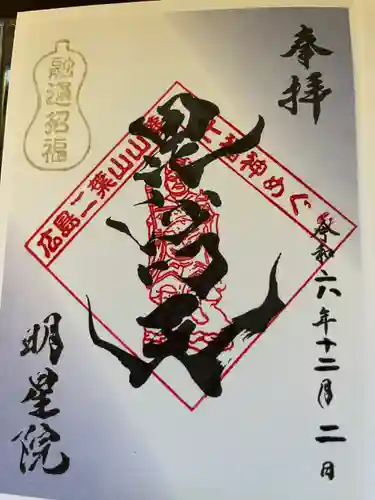 奉拝
令和六年十二月二日
毘沙門天
広島二葉山山麓七福神めぐり
融通招福
明星院